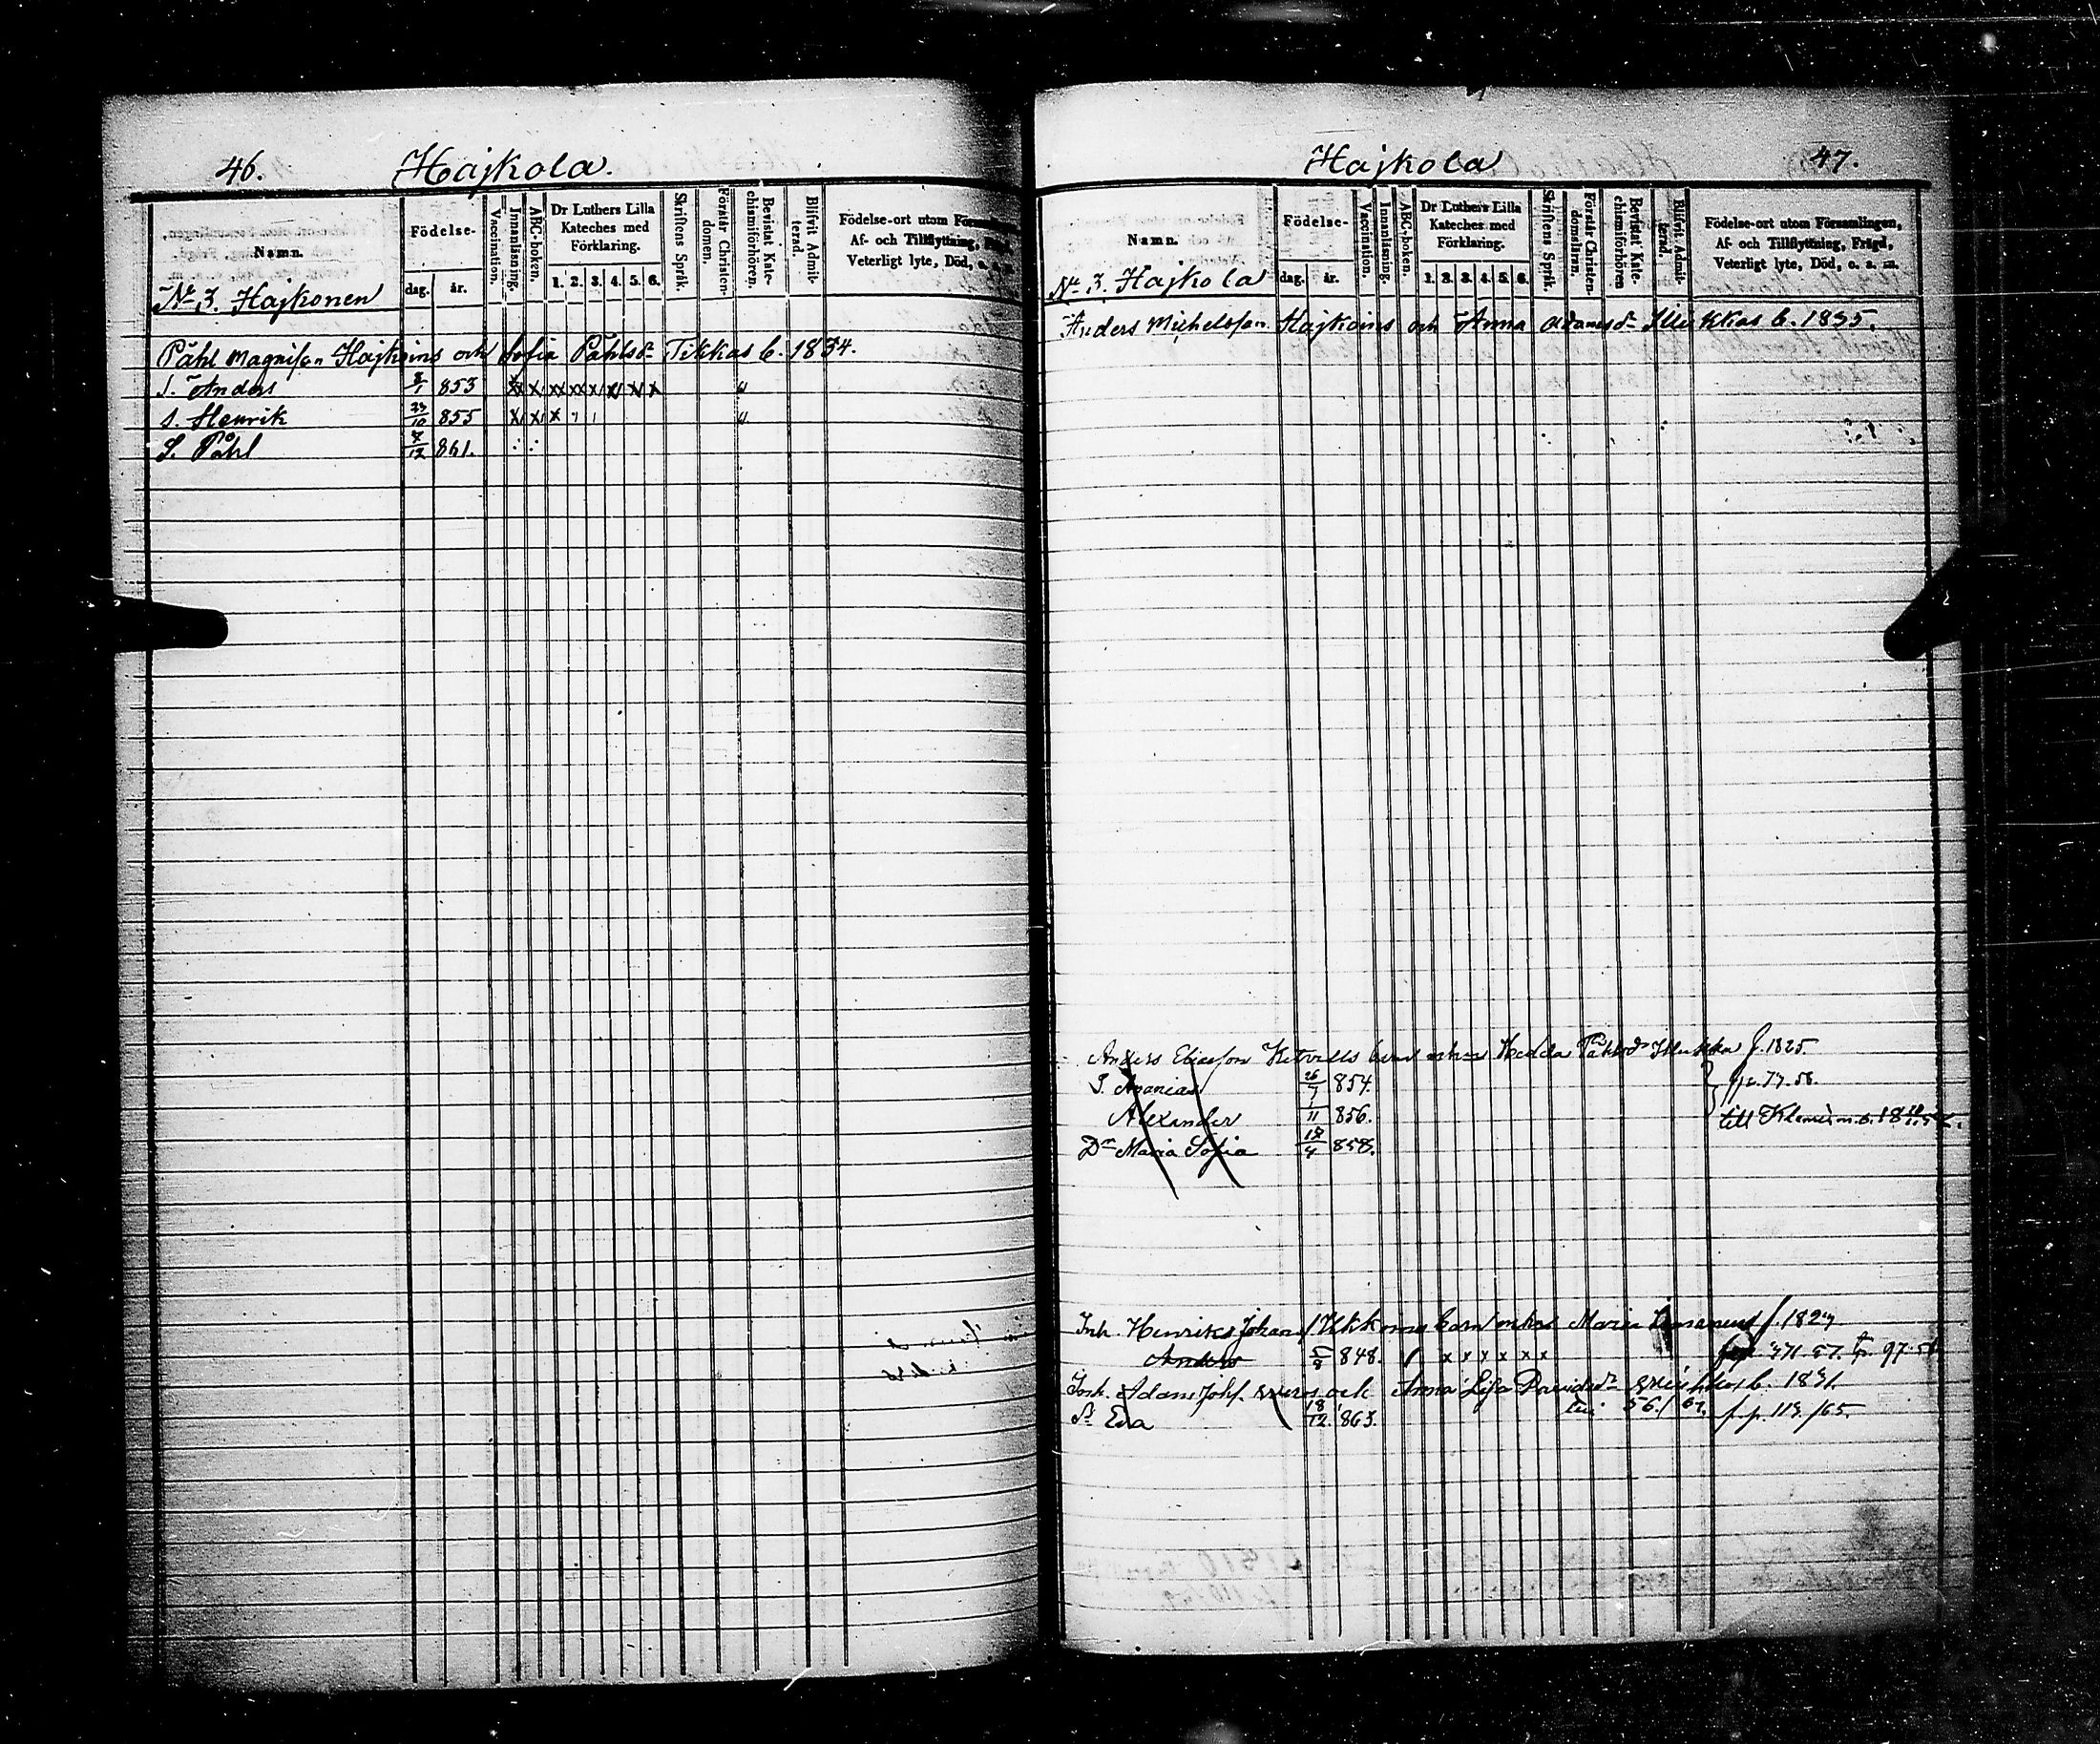 46. Hajkola.
Namn.
Födelse-
dag. år.
Vaccination.
Innanläsning.
ABC-boken.
Dr Luthers Lilla
Kateches med
Förklaring.
1. 2. 3. 4. 5. 6.
Skriftens Språk.
Förstår Christen-
domen.
Bevistat Kate-
chismiförhören.
Blifvit Admit-
terad.
Födelse-ort utom
Af- och Tillflyttning,
Veterligt lyte, Död, o. a. m.
No 3. Hajkonen
Påhl Magnison Hajkoins och Sofia Påhlsdr Tikkas b. 1834.
S. Anders 8/1 853
s. Henrik 23/10 855
S. Påhl 7/12 861.
Hajkola 47.
Namn.
Födelse-
dag. år.
Vaccination.
Innanläsning.
ABC-boken.
Dr Luthers Lilla
Kateches med
Förklaring.
1. 2. 3. 4. 5. 6.
Skriftens Språk.
Förstår Christen-
domsläran.
Bevistat Kate-
chismiförhören
Blifvit Admit-
terad.
Födelse-ort utom Församlingen,
Af- och Tillflyttning, Frägd,
Veterligt lyte, Död, o. s. m.
No 3. Hajkola
Anders Michelsson Hajkoins och Anna Adamsdr Illukkas b. 1835.
Anders Eliasson barn Hedda Påhlsdr Illukka f. 1825
S. Ananias 26/7 854.
Alexander 1/11 856.
Dr Maria Sofia 18/4 858.
till
Inh. Henriks Johans Ukkoins barn Maria f. 1827
Anders 5/8 848.
Inh. Adam Johs. och Anna Lisa Davidsdr b. 1831
Eva 18/12 863. 56./ 67. f. p. 113./65.